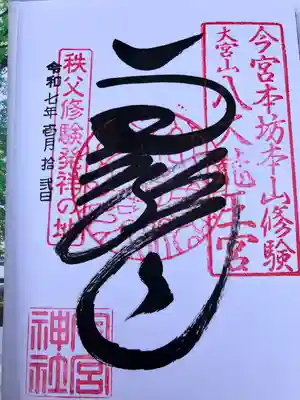 今宮本坊本山修験
大宮山八大龍王宮
秩父修験発祥の地
令和七年百月拾弐日
今宮
神社